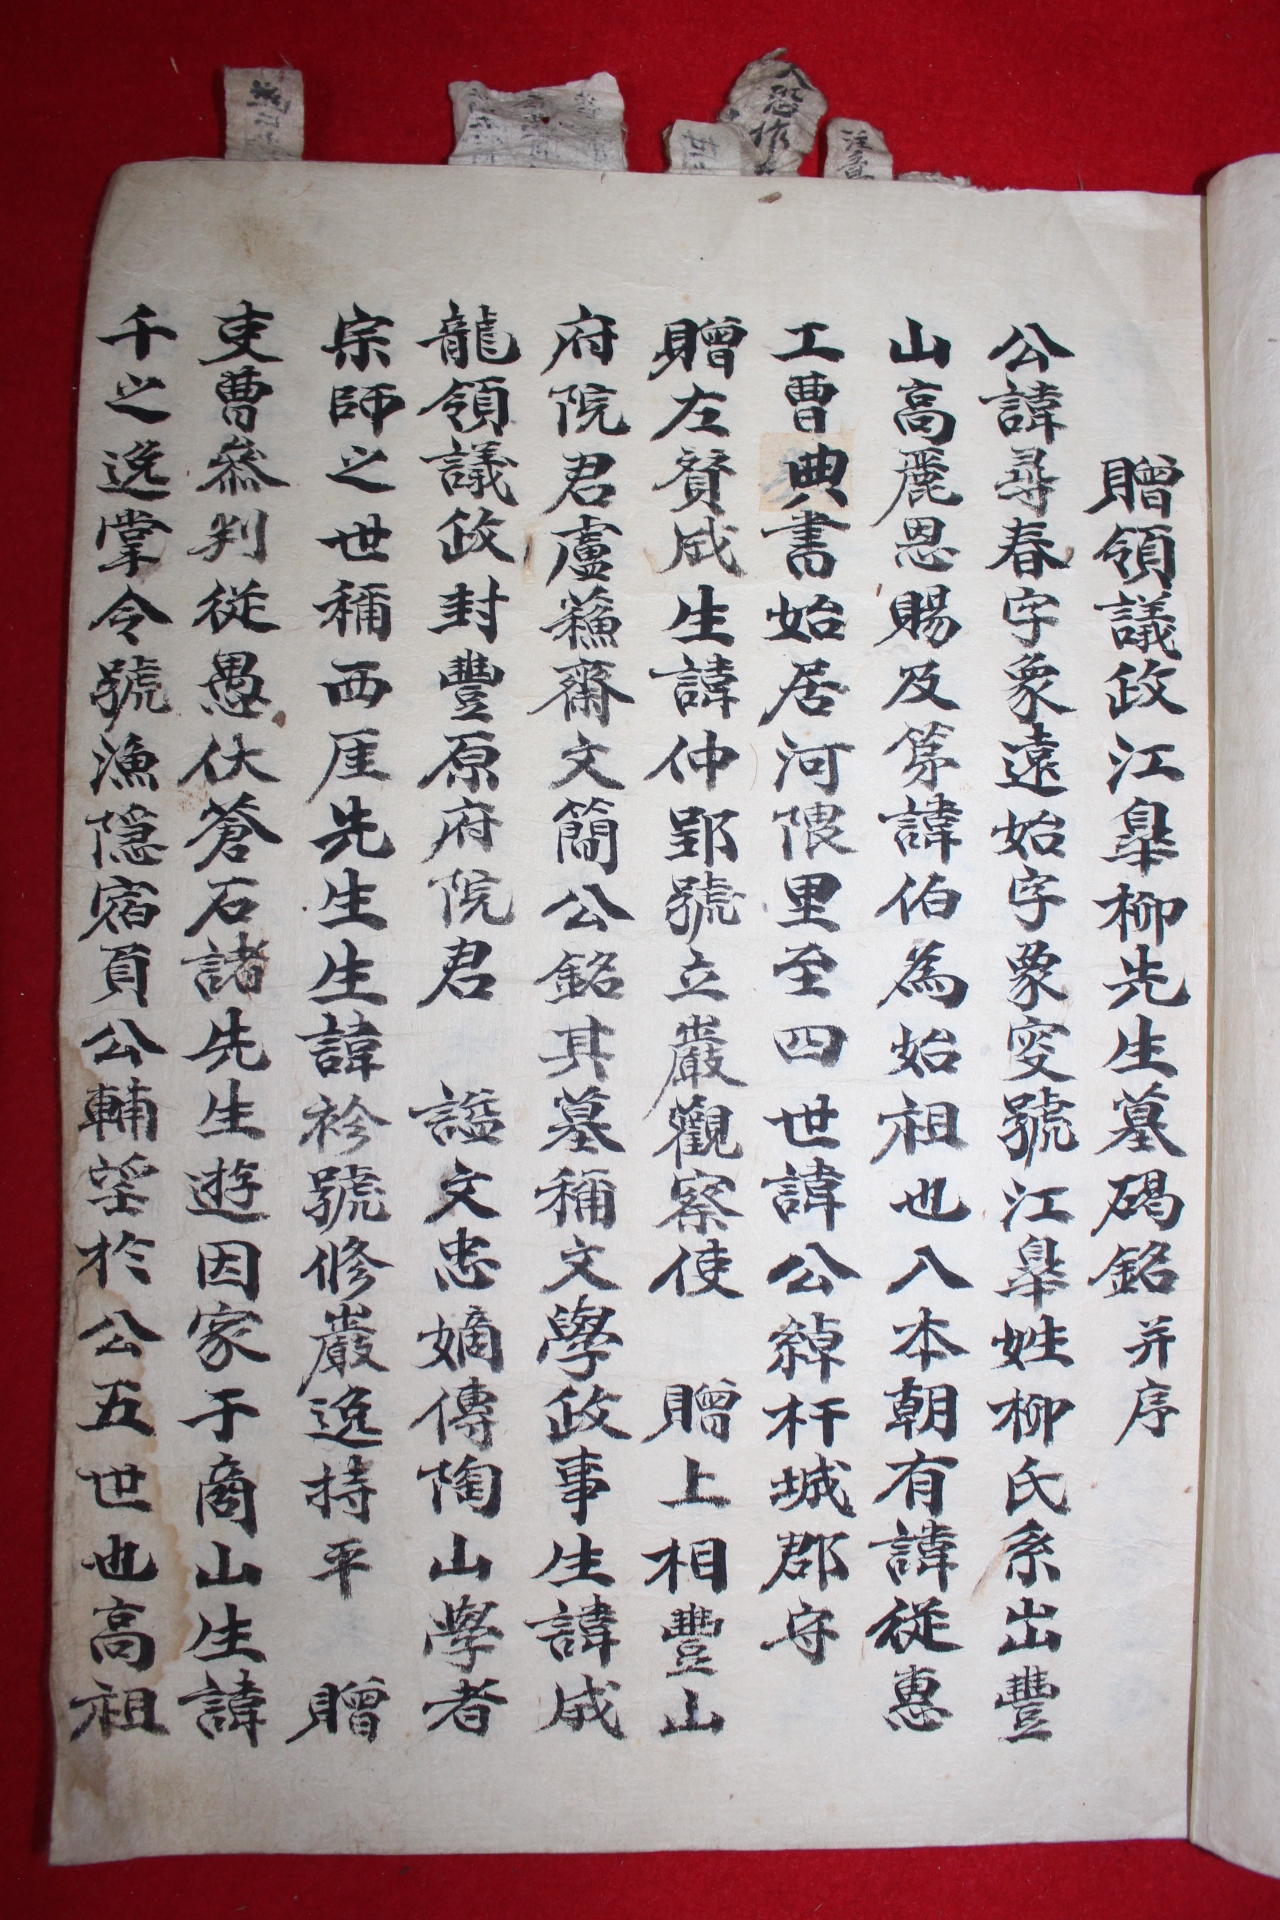 贈領議政江皐柳先生墓碣銘 并序
公諱尋春字象遠始字象変號江皐姓柳氏系出豐
山高麗恩賜及第諱伯為始祖也入本朝有諱從惠
工曹典書始居河隈里至四世諱公綽杆城郡守
贈左贊成生諱仲郢號立巖觀察使 贈上相豐山
府院君盧蘓齋文簡公銘其墓稱文學政事生諱成
龍領議政封豐原府院君 謚文忠嫡傳陶山學者
宗師之世稱西厓先生生諱袗號修巖逸持平 贈
吏曹叅判從愚伏蒼石諸先生遊因家于商山生諱
千之逸掌令號漁隱宿負公輔望於公五世也高祖
大恐
注書